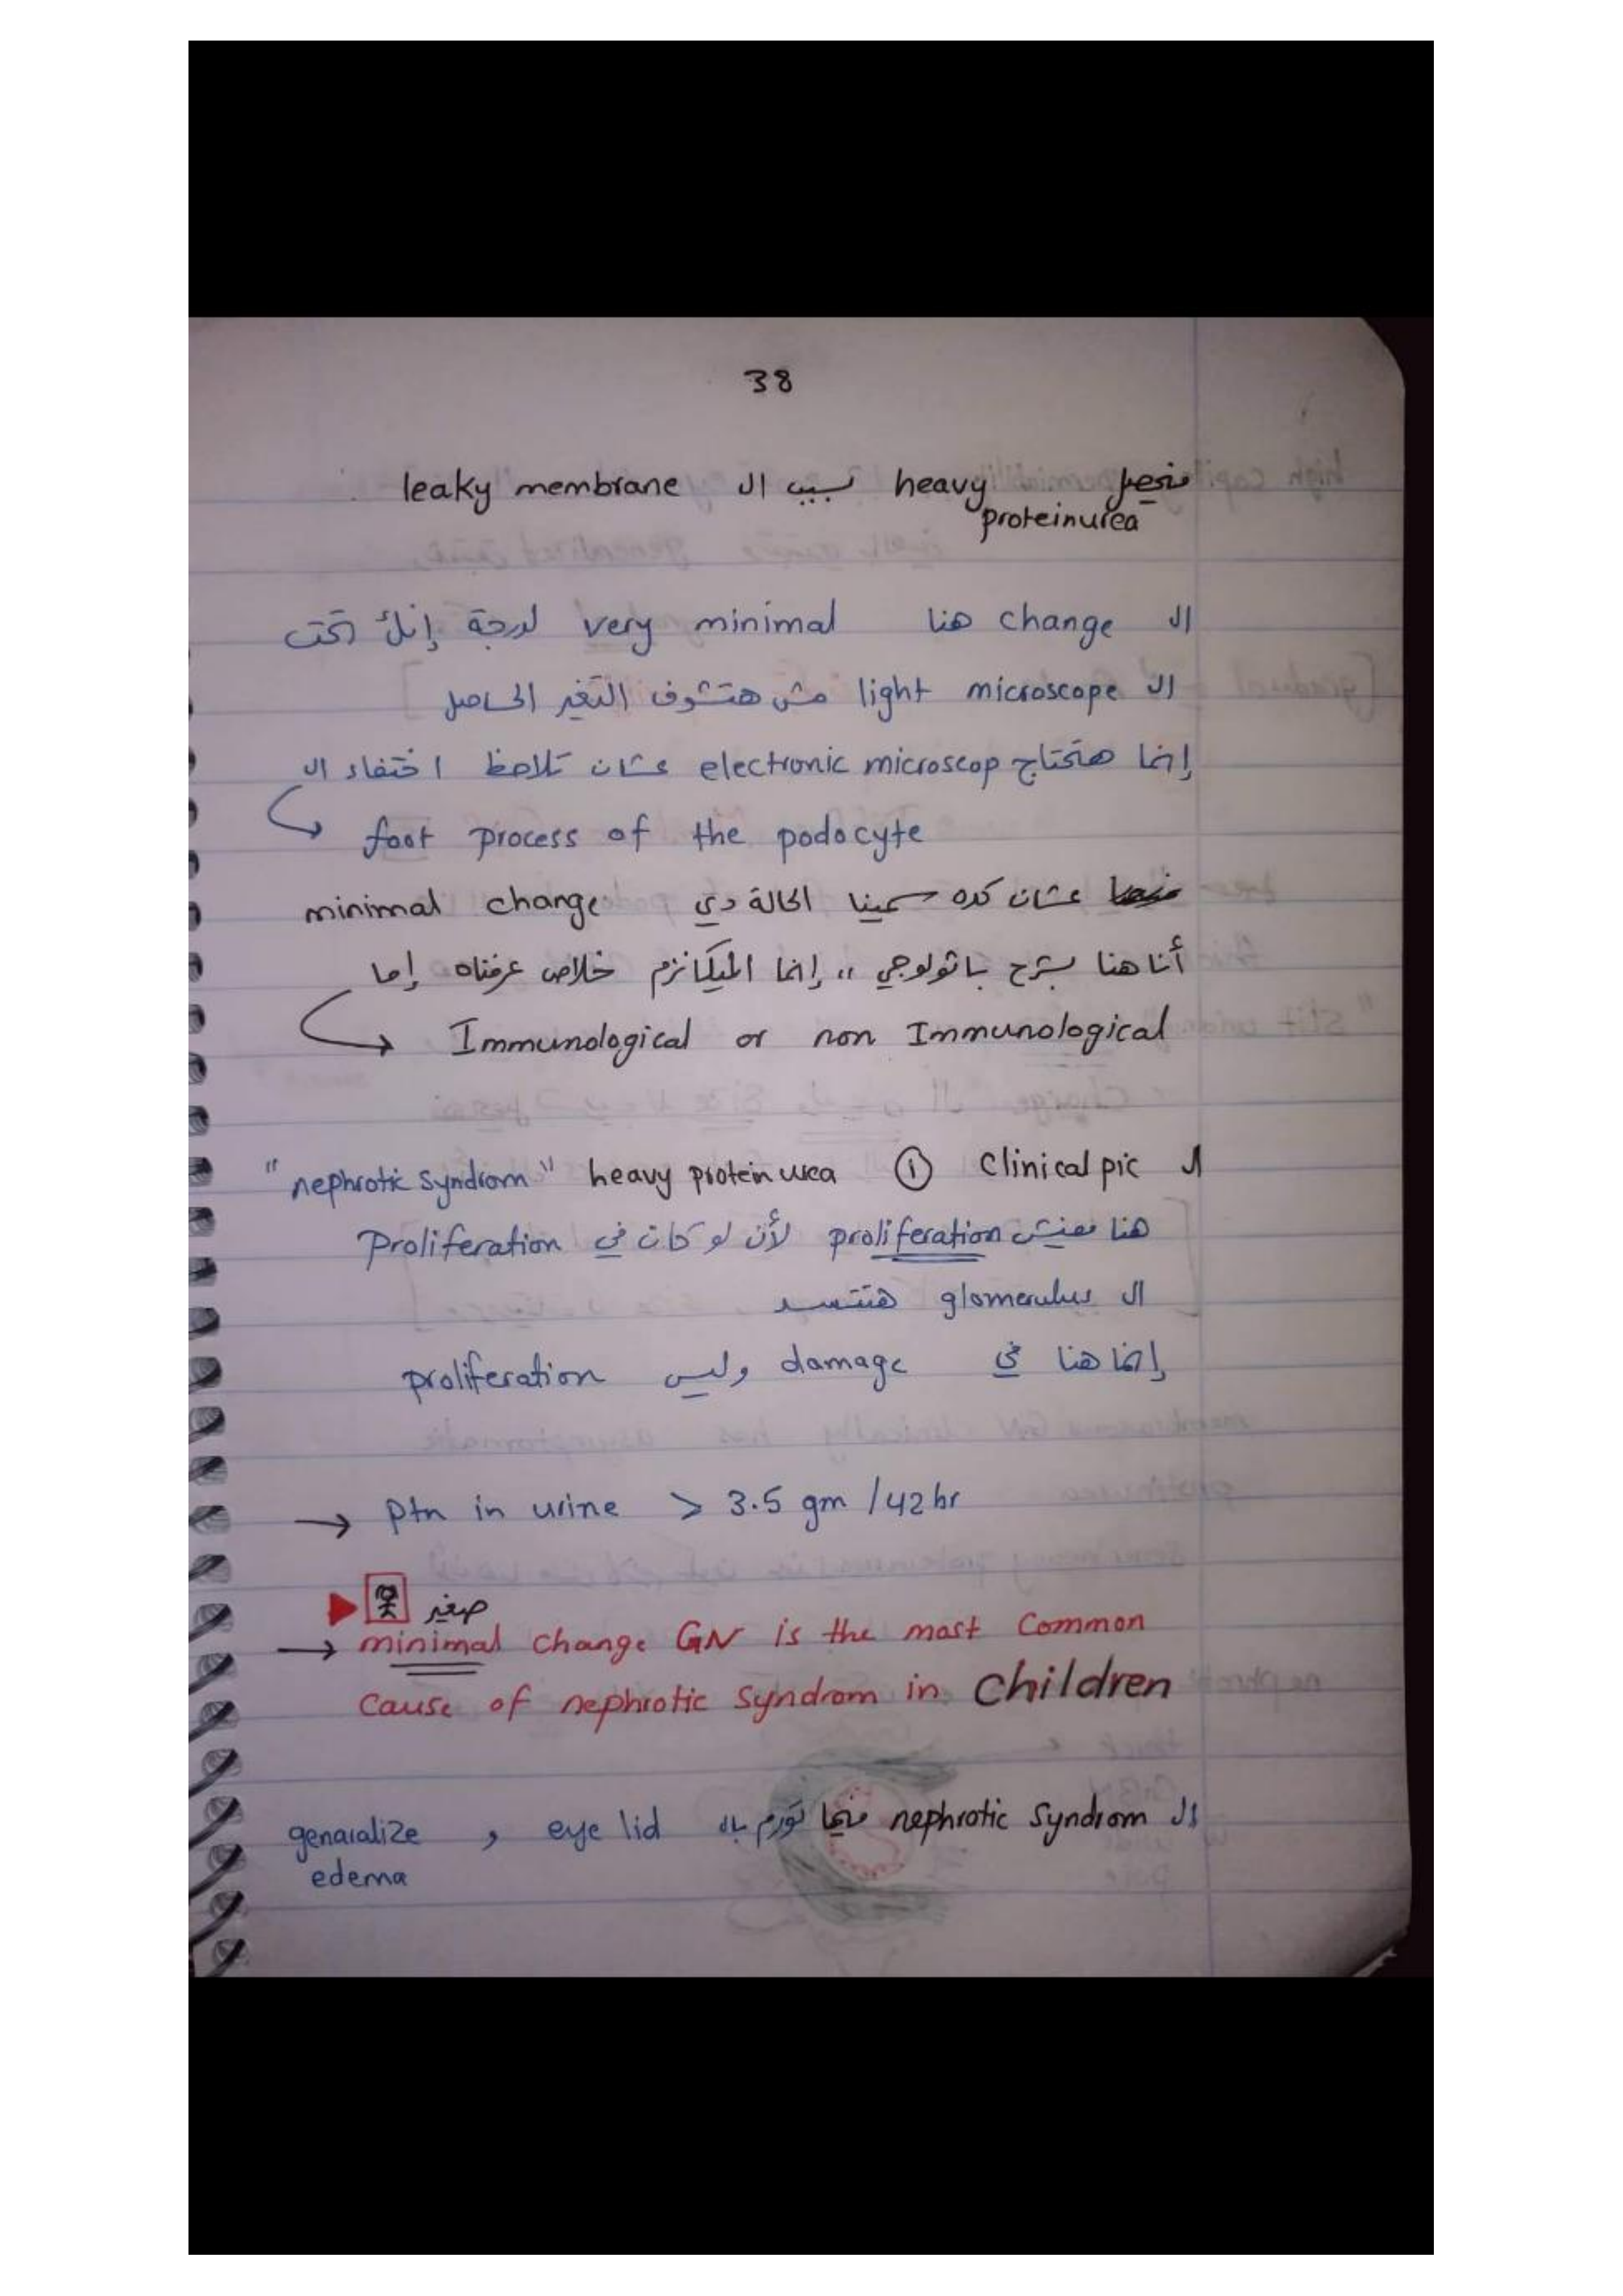 38
فيحصل heavy بسبب ال leaky membrane
proteinurea
ال change هنا very minimal لدرجة إنك تحت
ال light microscope مش هتشوف التغير الحاصل
إنما هتحتاج electronic microscop عشان تلاحظ اختفاء ال
foot process of the podocyte
عشان كده سمينا الحالة دي minimal change
أنا هنا بشرح باثولوجي ،، إنما الميكانزم خلاص عرفناه إما
Immunological or non Immunological
ال Clinical pic ① heavy protein urea "nephrotic Syndrom"
هنا مفيش proliferation لأن لو كان في Proliferation
ال glomerulus هتتسد
إنما هنا في damage وليس proliferation
→ Ptn in urine > 3.5 gm /42hr
صغير
→ minimal change GN is the most Common
Cause of nephrotic Syndrom in Children
ال nephrotic Syndrom فيها تورم بال eye lid , genaralize
edema